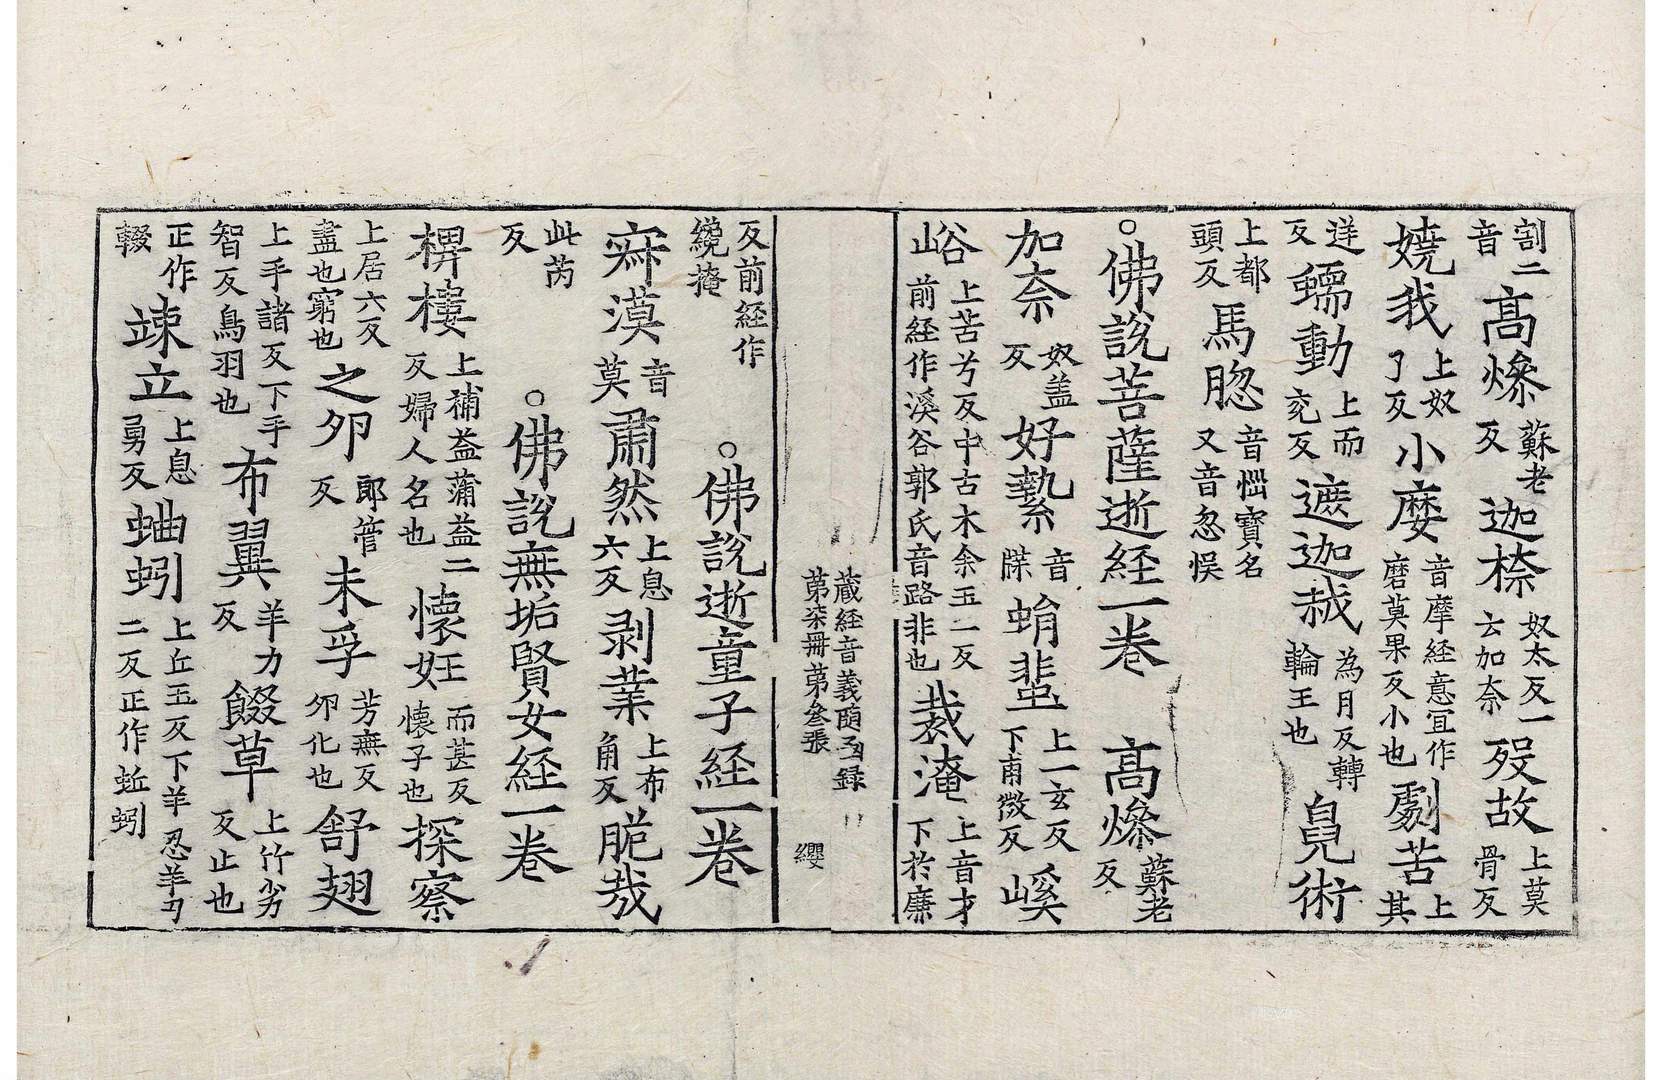 割二音高㷮蘇老反迦㮈奴太反一云加奈歿故上莫骨反
嬈我上奴了反小麼音摩経意宜作磨莫果反小也劇苦上其
逆反蠕動上而兖反遮迦越為月反轉輪王也皃術
上都頭反馬䐅音惚寶名又音忽悮
○佛說菩薩逝経一卷 高㷮蘇老反
加奈奴盖反好縶音牒蜎蜚上一玄反下甫微反嵠
峪上苦兮反中古木余玉二反前経作溪谷郭氏音路非也裁淹上音才下於廉
蔵経音義随函録
第柒冊第叄張 纓
反前経作纔掩 ○佛說逝童子経一卷
寂漠音莫肅然上息六反剥業上布角反脆哉
此芮反 ○佛說無垢賢女経一卷
椑樓上補益蒲益二反婦人名也懐妊而甚反懐子也探察
上居六反盡也窮也之夘郎管反未孚芳無反夘化也舒翅
上手諸反下手智反鳥羽也布翼羊力反餟草上竹劣反止也
正作輟竦立上息勇反蛐蚓上丘玉反下羊忍羊刃二反正作蚯蚓